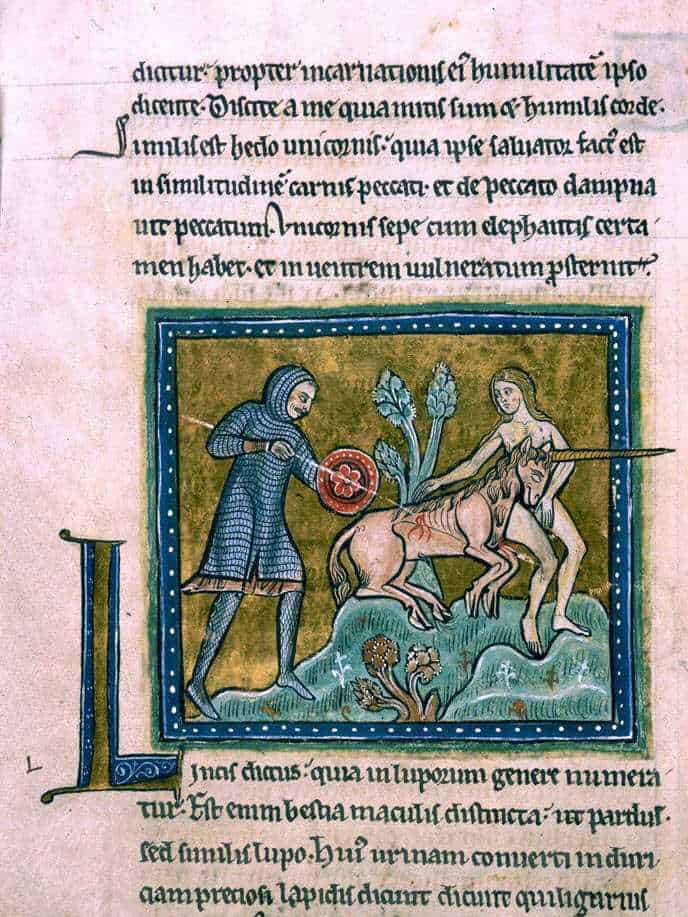 dicitur· propter incarnationis ei᾽ humilitatē ipso
dicente· Discite a me quia mitis sum & humilis corde·
Similis est hedo unicornis· quia ipse saluator fact᾽ est
in similitudinē carnis peccati· et de peccato dampna
uit peccatum· Vnicornis sepe cum elephantis certa
men habet· et in uentrem uulneratum ꝓsternit·
L
Lincis dictus· quia in luporum genere numera
tur· Est enim bestia maculis distincta· ut pardus·
sed similis lupo· Hui᾽ urinam conuerti in duri
ciam preciosi lapidis dicunt